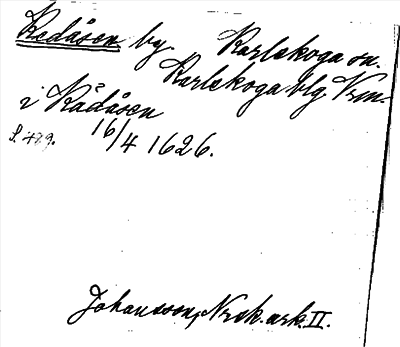 Rådåsen by Karlskoga sn.
Karlskoga blg Vrm.
i Rådåsen
S. 479. 16/4 1626.
Johansson, Nrsk. ark. II.